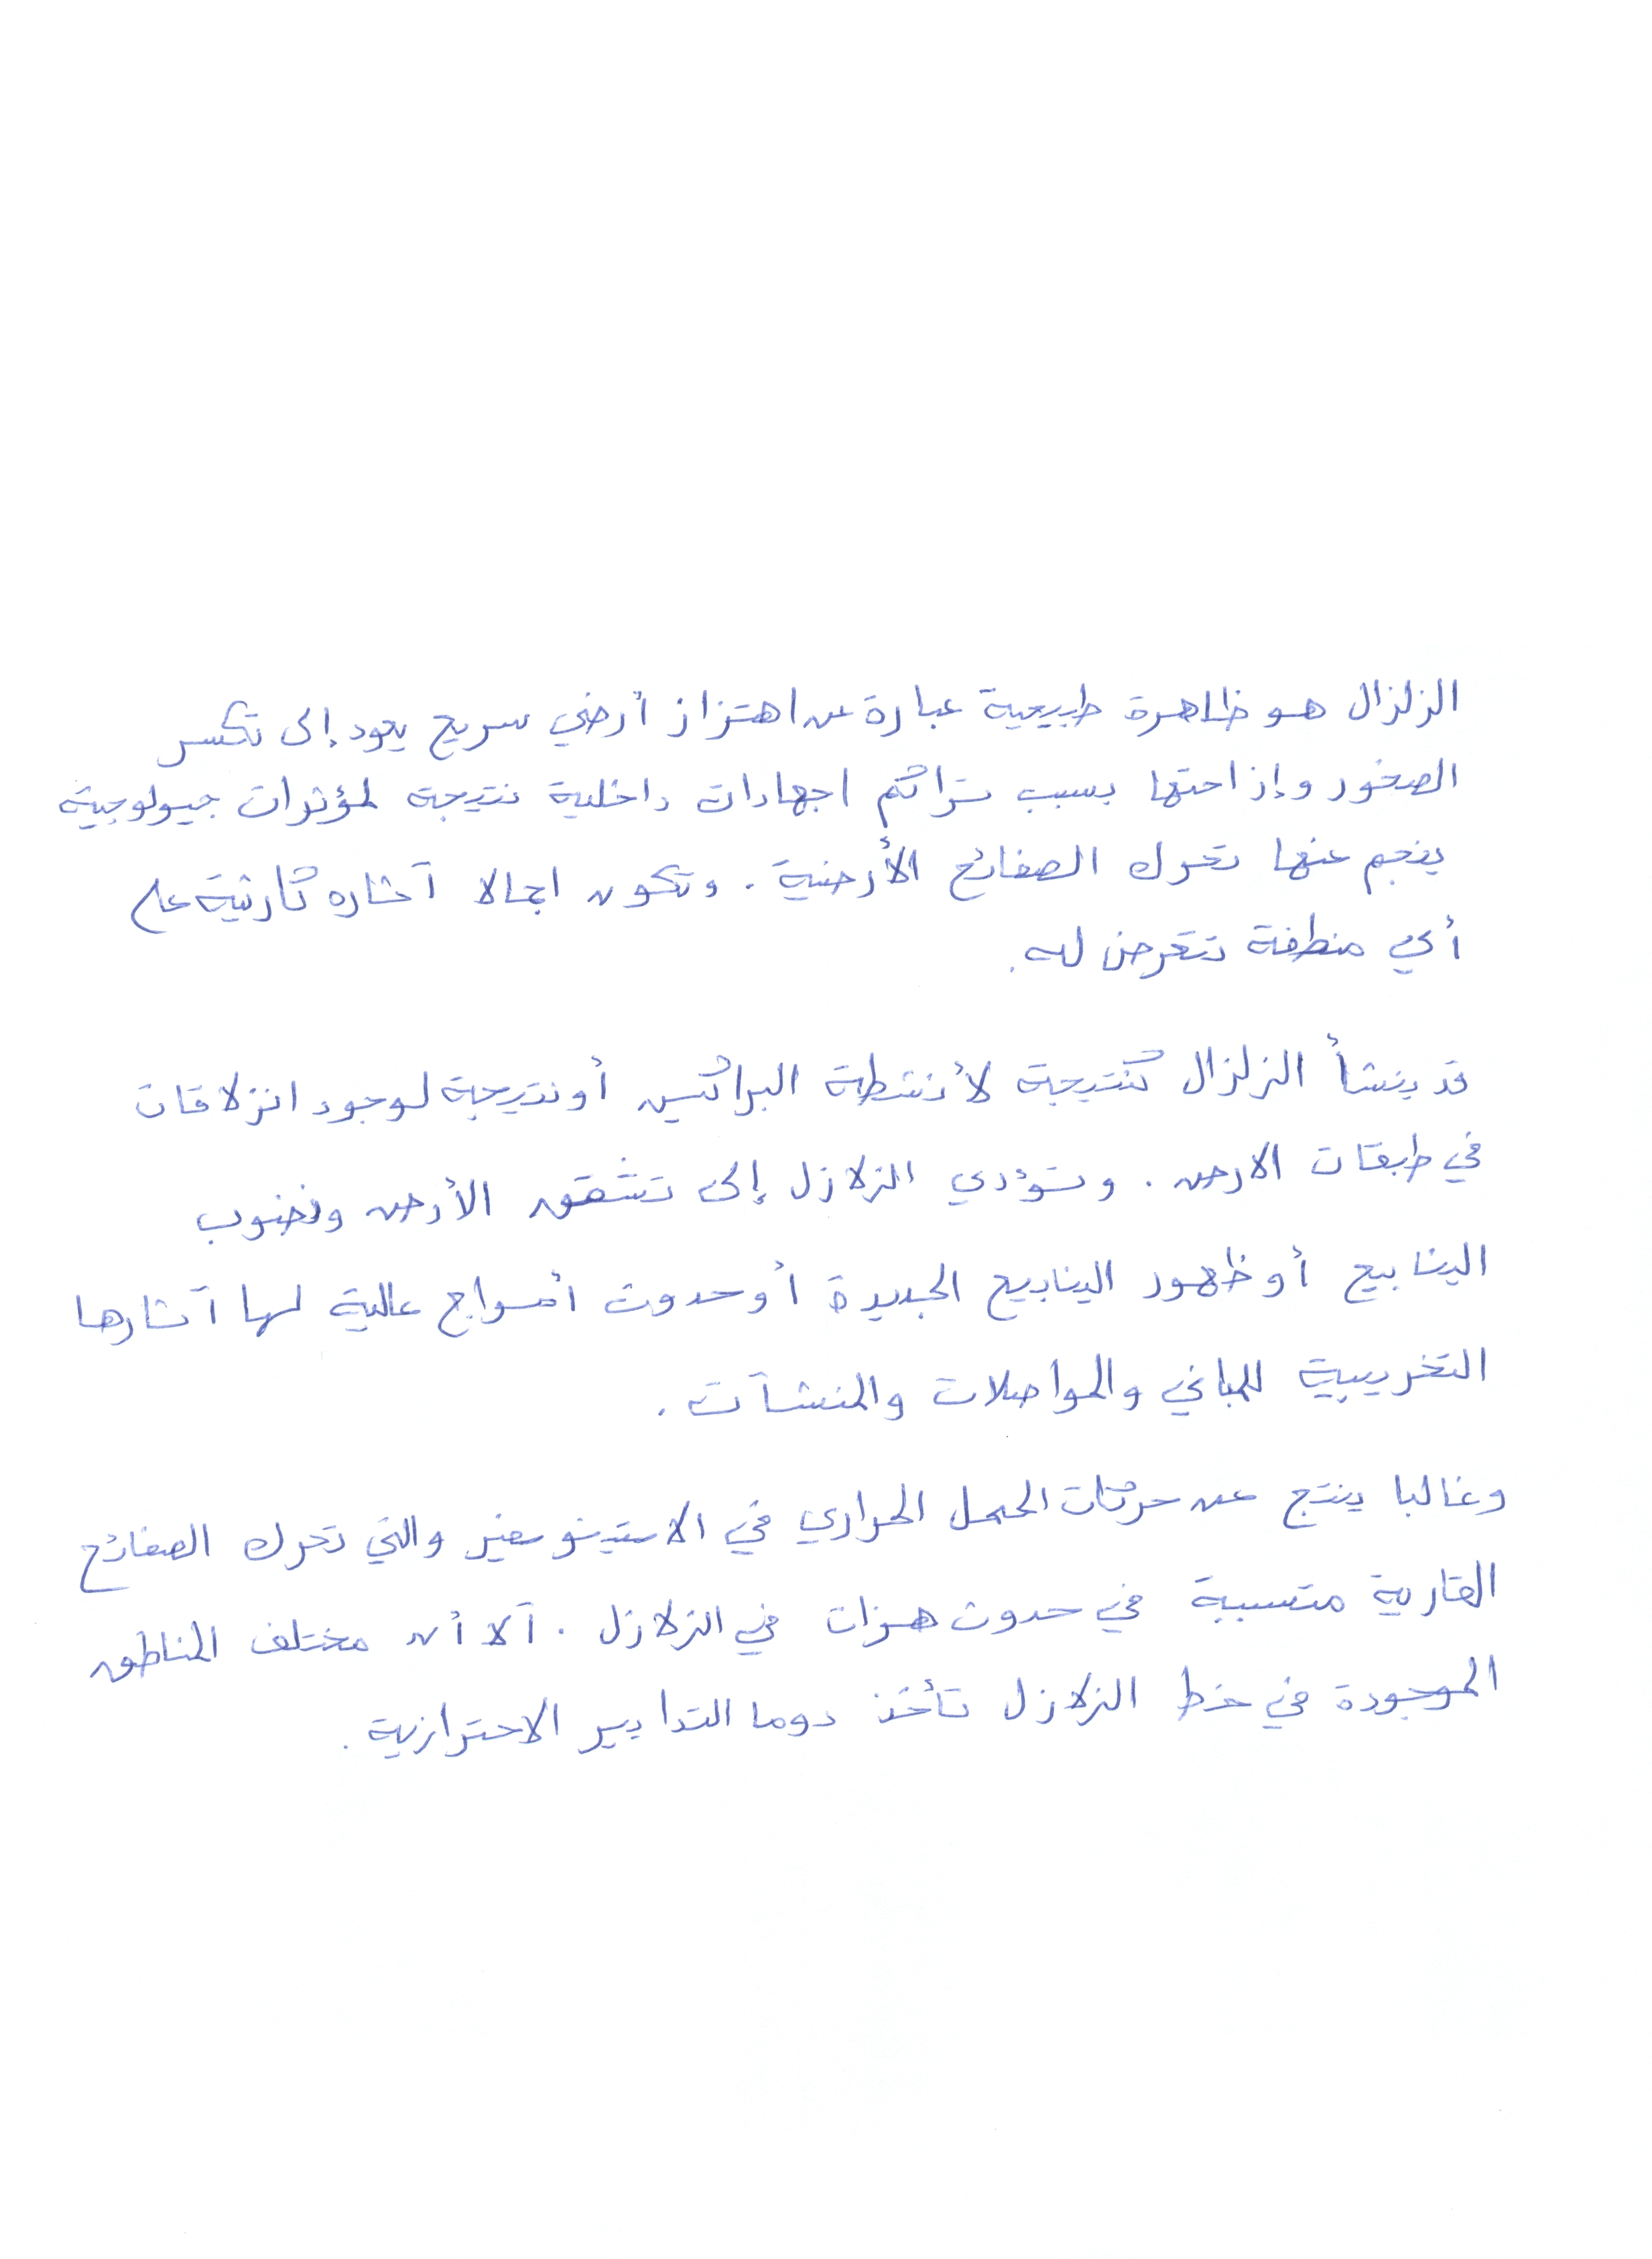 الزلزال هو ظاهرة طبيعية عبارة عن اهتزاز أرضي سريع يعود إلى تكسر
الصخور وإزاحتها بسبب تراكم اجهادات داخلية نتيجة لمؤثرات جيولوجية
ينجم عنها تحرك الصفائح الأرضية . وتكون اجمالا آثاره كارثية على
أي منطقة تتعرض له .
قد ينشأ الزلزال كنتيجة لأنشطة البراكين أو نتيجة لوجود انزلاقات
في طبقات الارض . وتؤدي الزلازل إلى تشقق الأرض ونضوب
الينابيع أو ظهور الينابيع الجديدة أو حدوث أمواج عالية لها آثارها
التخريبية للمباني والمواصلات والمنشآت .
وغالبا ينتج عن حركات الحمل الحراري في الاستينوسفير والتي تحرك الصفائح
القارية متسببة في حدوث هزات في الزلازل . آلا أن مختلف المناطق
الموجودة في خط الزلازل تأخذ دوما التدابير الاحترازية .